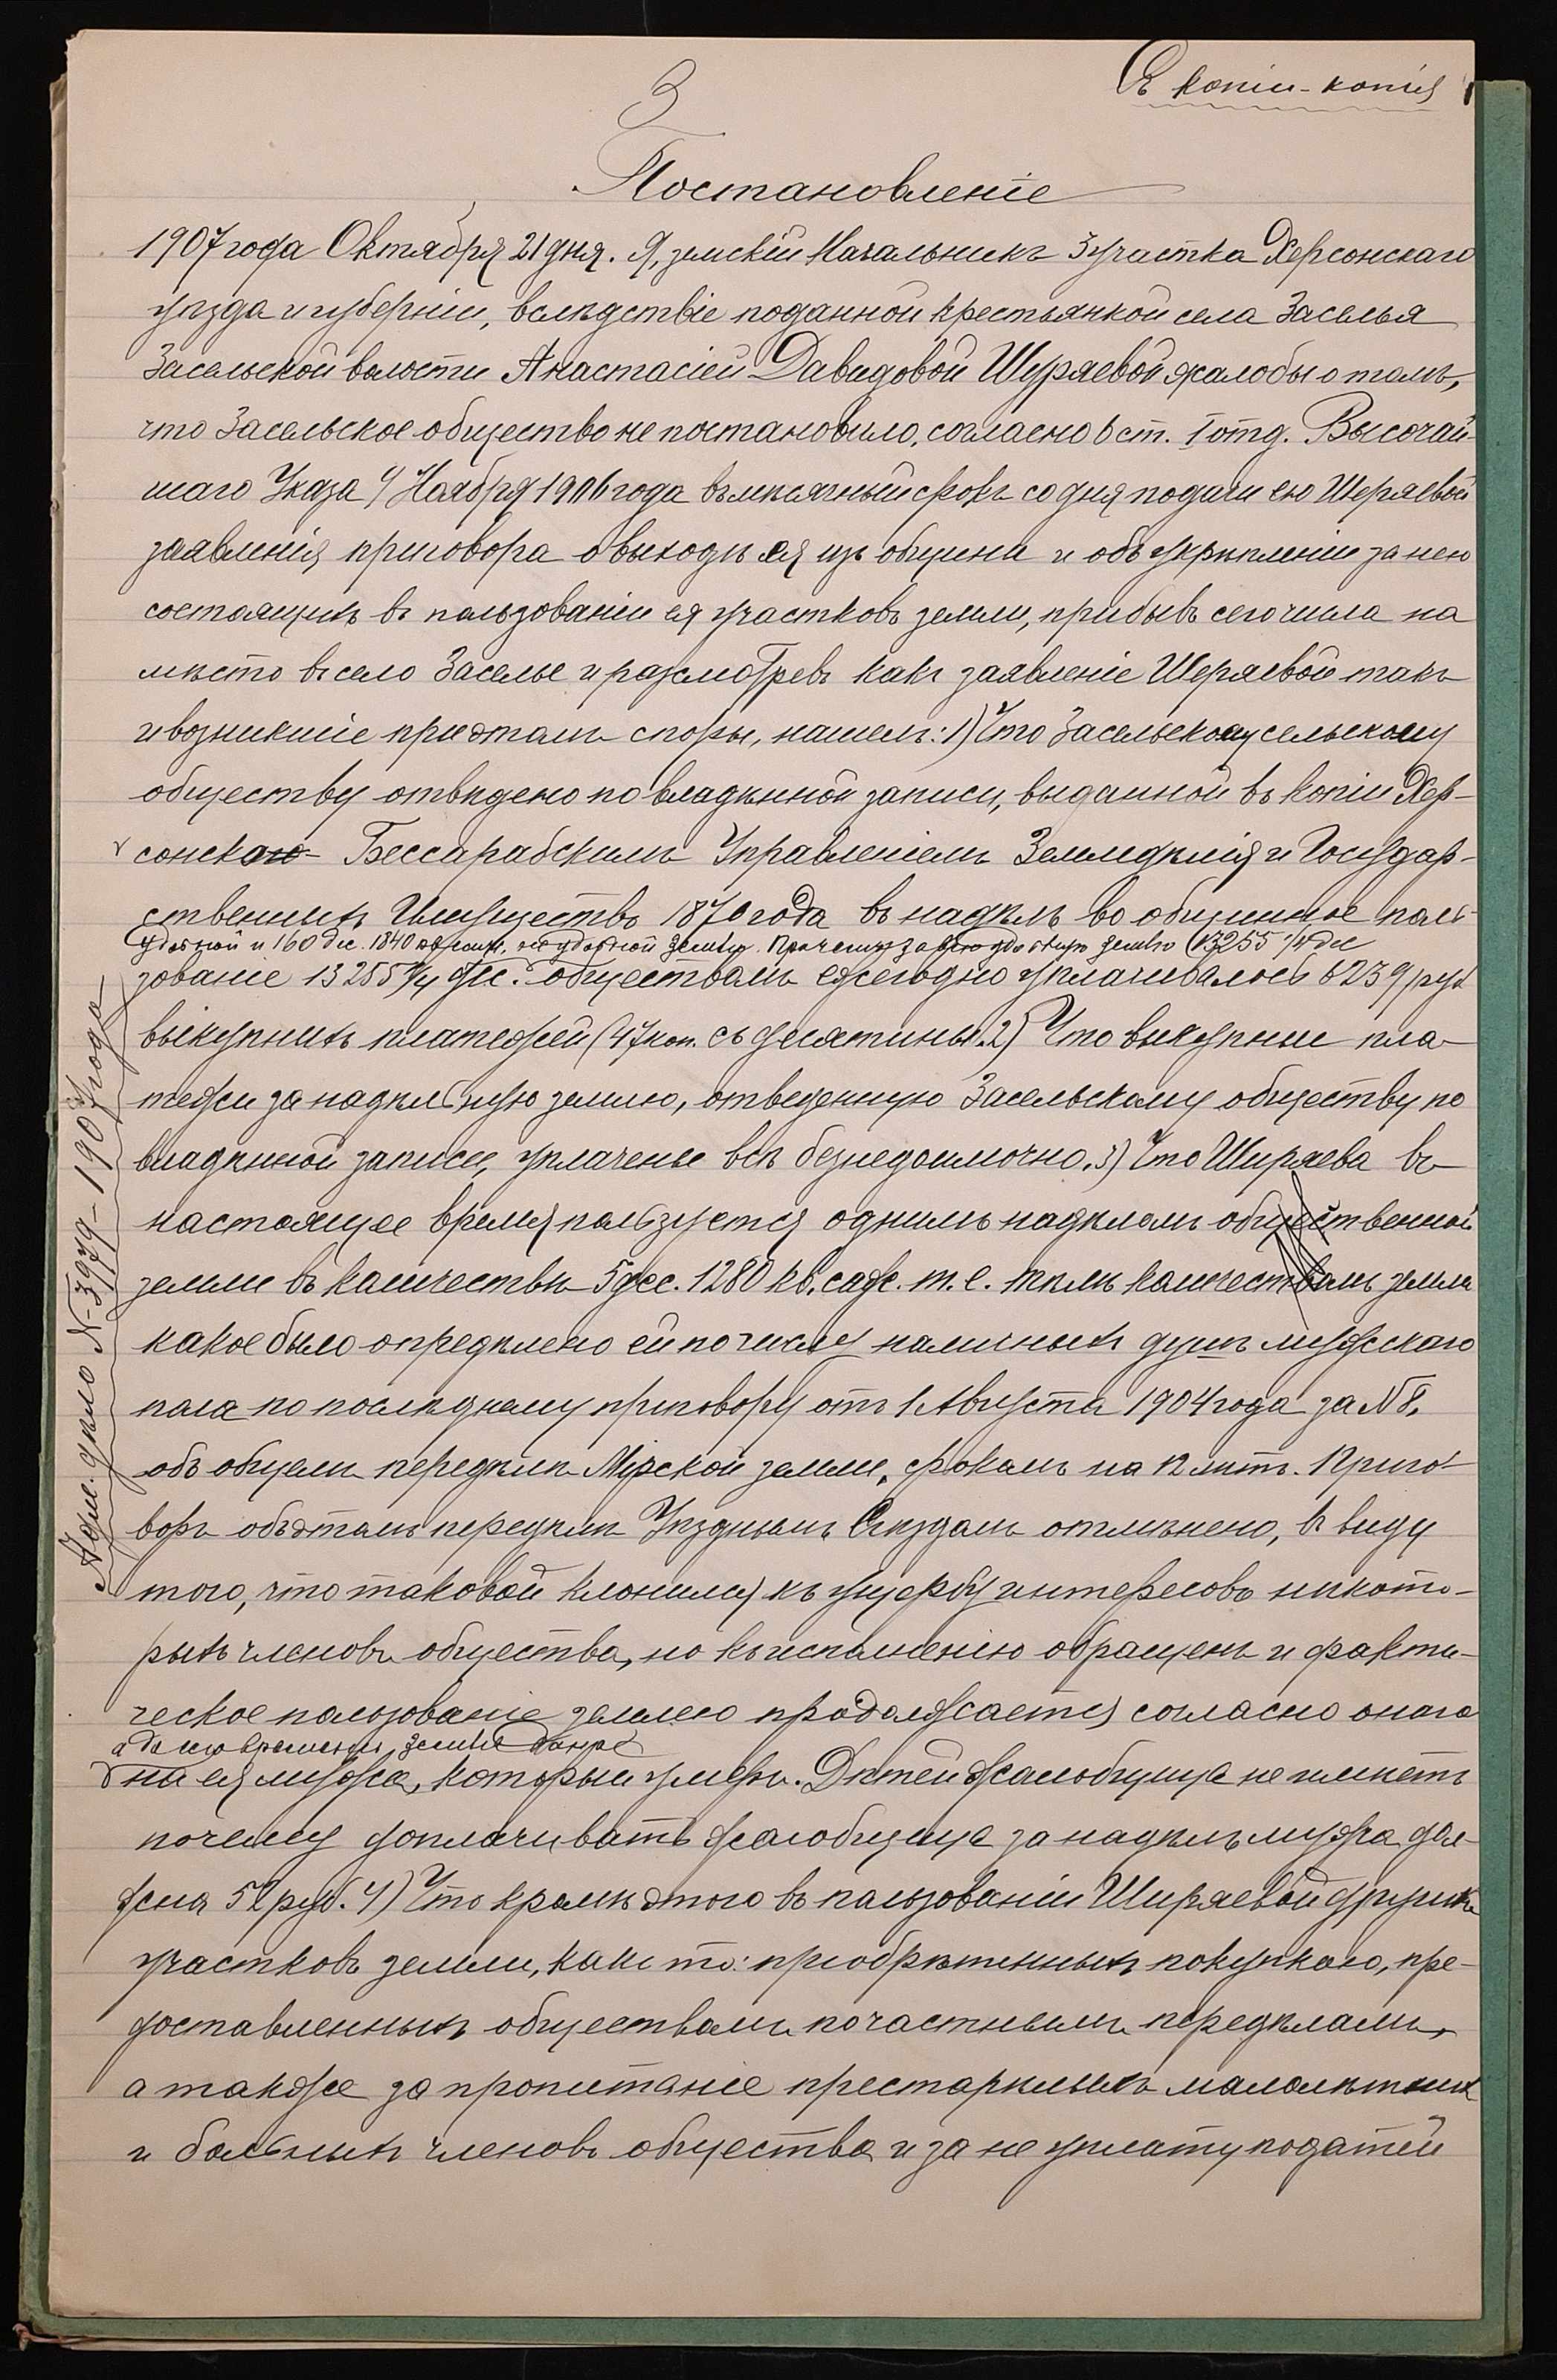 Съ копіи-копія
3
Постановленіе
1907 года Октября 21 дня. Я, земскій Начальникъ 3 участка Херсонскаго
уѣзда и губерніи, вслѣдствіе поданной крестьянкой села Заселья
Засельской волости Анастасіей Давидовой Шуряевой жалобы о томъ,
что Засельское общество не постановило, согласно 6 ст. I отд. Высочай-
шаго Указа 9 Ноября 1906 года въ мѣсячный срокъ со дня подачи ею Шеряевой
заявленія, приговора о выходѣ ея изъ общины и объ укрѣпленіи за нею
состоящихъ въ пользованіи ея участковъ земли, прибывъ сего числа на
мѣсто въ село Заселье и разсмотревъ какъ заявленіе Шеряевой такъ
и возникшіе при этомъ споры, нашелъ: 1) Что Засельскому сельскому
обществу отведено по владѣнной записи, выданной въ копіи Хер-
сонскаго-Бессарабскимъ Управленіемъ Земледѣлія и Государ-
ственныхъ Имуществъ 1870 года въ надѣлъ во общинное поль-
удобной и 160 дес. 1840 кв. саж. неудобной земли. Причемъ за всю удобную землю (13255 1/4 дес
зованіе 13255 1/4 дес. обществомъ ежегодно уплачивалось 6239 руб
выкупныхъ платежей (47 коп. съ десятины. 2) Что выкупные пла-
тежи за надѣльную землю, отведенную Засельскому обществу по
владѣнной записи, уплачены всѣ безнедоимочно. 3) Что Ширяева въ
настоящее время пользуется однимъ надѣломъ общественной
земли въ количествѣ 5 дес. 1280 кв. саж. т. е. тѣмъ количествомъ земли
какое было опредѣлено ей по числу наличныхъ душъ мужскаго
пола по послѣднему приговору отъ 1 Августа 1904 года за № 8.
объ общемъ передѣлѣ Мірской земли, срокомъ на 12 лѣтъ. Приго-
воръ объ этомъ передѣлѣ Уѣзднымъ Съѣздомъ отмѣнено, въ виду
того, что таковой клонился къ ущербу интересовъ нѣкото-
рыхъ членовъ общества, но къ исполненію обращенъ и факти-
ческое пользованіе землею продолжается согласно онаго
а до сего времени земля
на ея мужа, который умеръ. Дѣтей жалобщица не имѣетъ
почему доплачивать жалобщица за надѣлъ мужа дол-
жна 52 руб. 4) Что кромѣ этого въ пользованіи Ширяевой другихъ
участковъ земли, какъ то: пріобрѣтенныхъ покупкою, пре-
доставленныхъ обществомъ по частнымъ передѣламъ,
а также за пропитаніе престарѣлыхъ малолѣтнихъ
и больныхъ членовъ общества и за не уплату податей
Адм. дѣло № 3979 - 1907 года